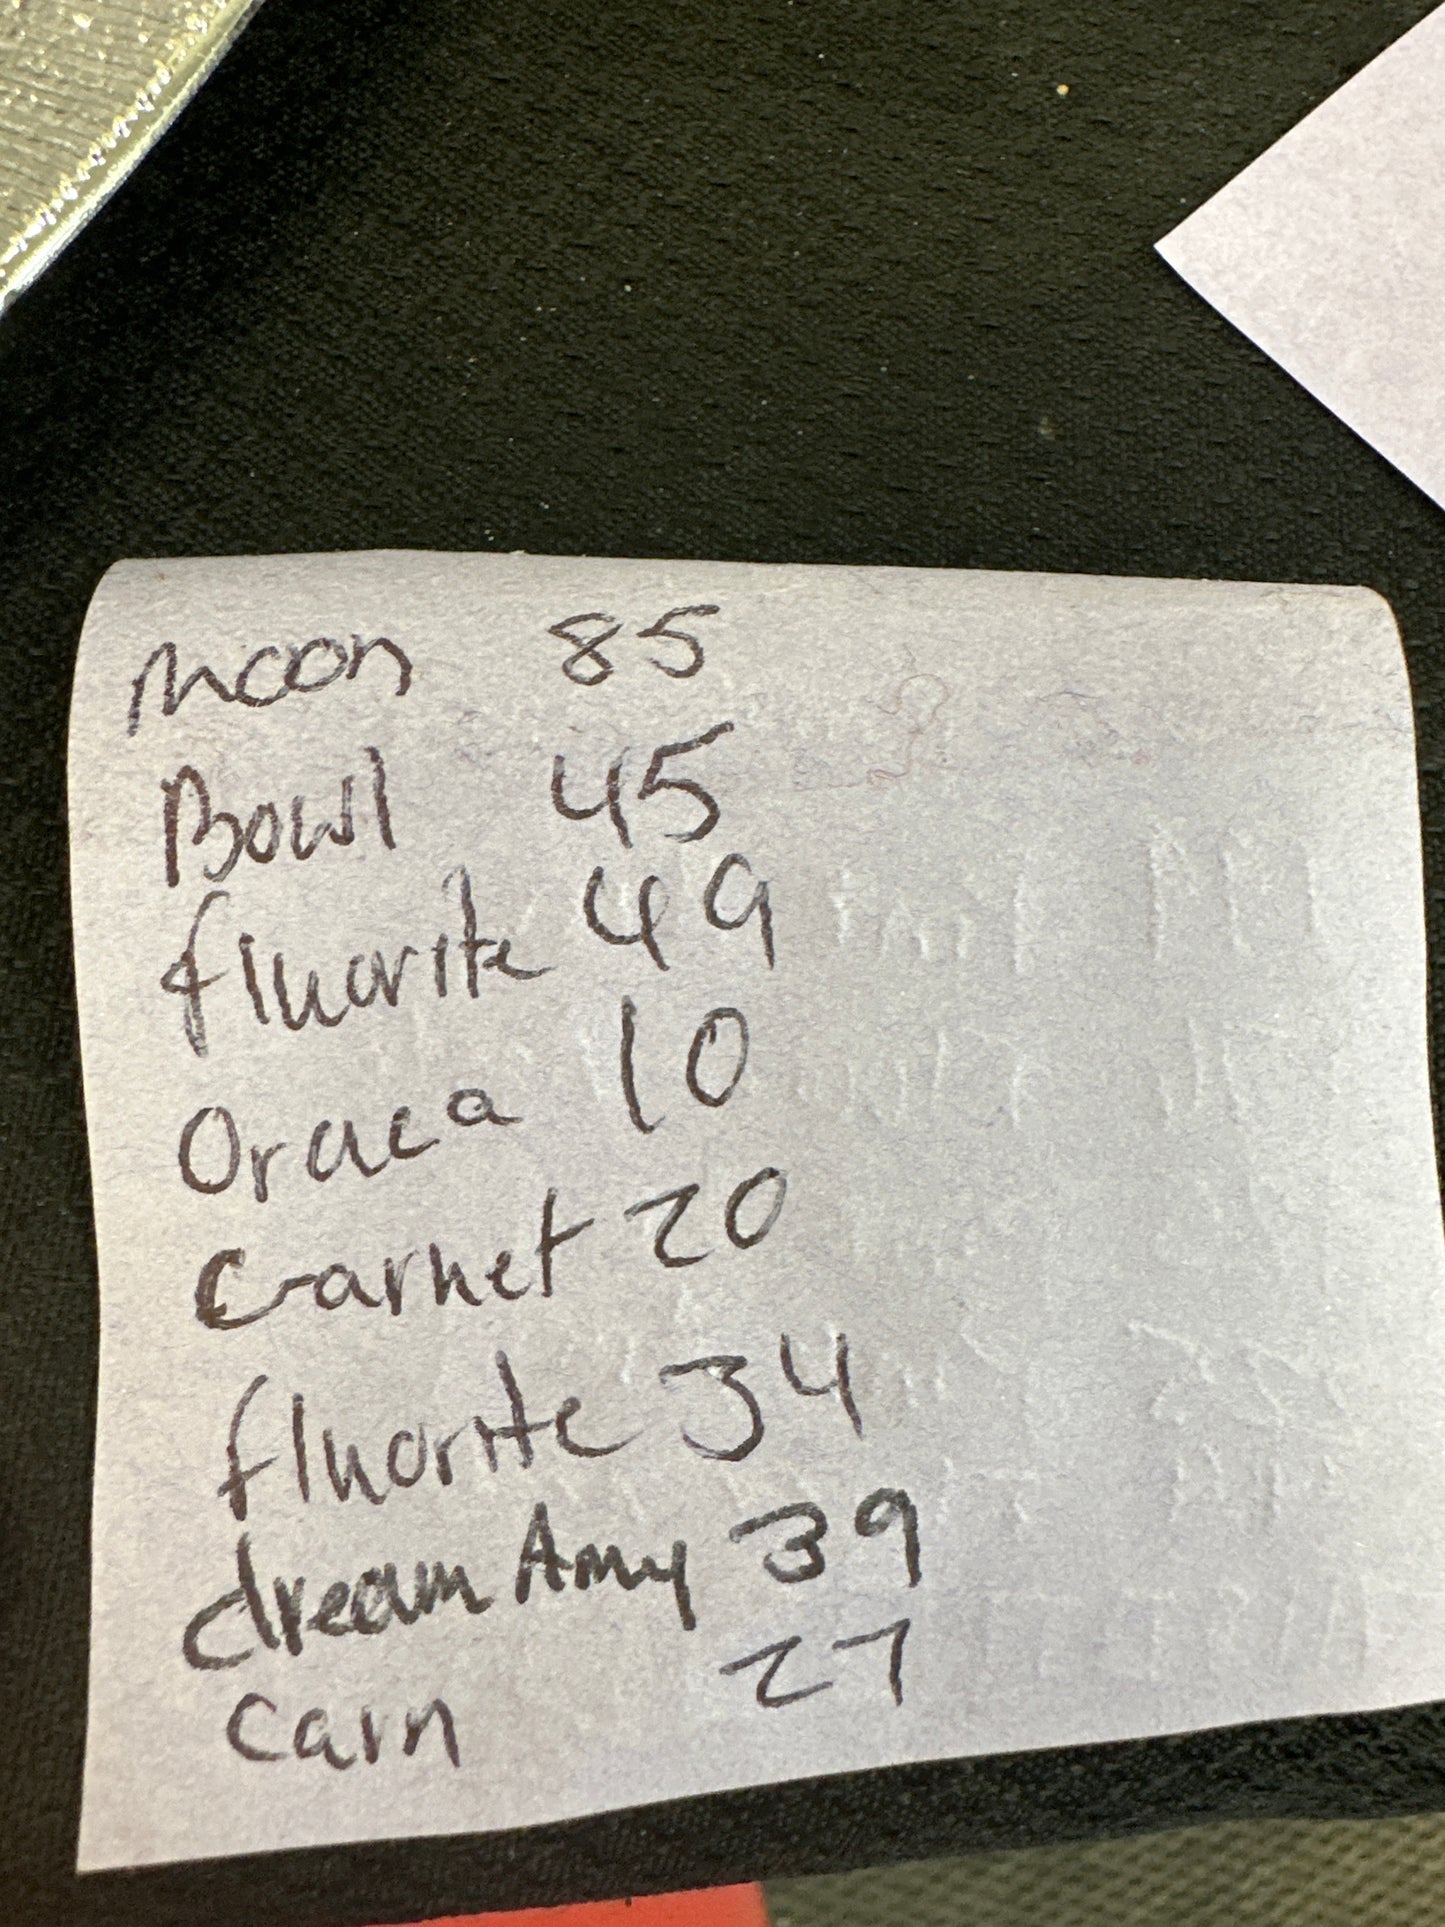 Moon 85
Bowl 45
fluorite 49
Oraca 10
Garnet 20
fluorite 34
dream Amy 39
Carn 27